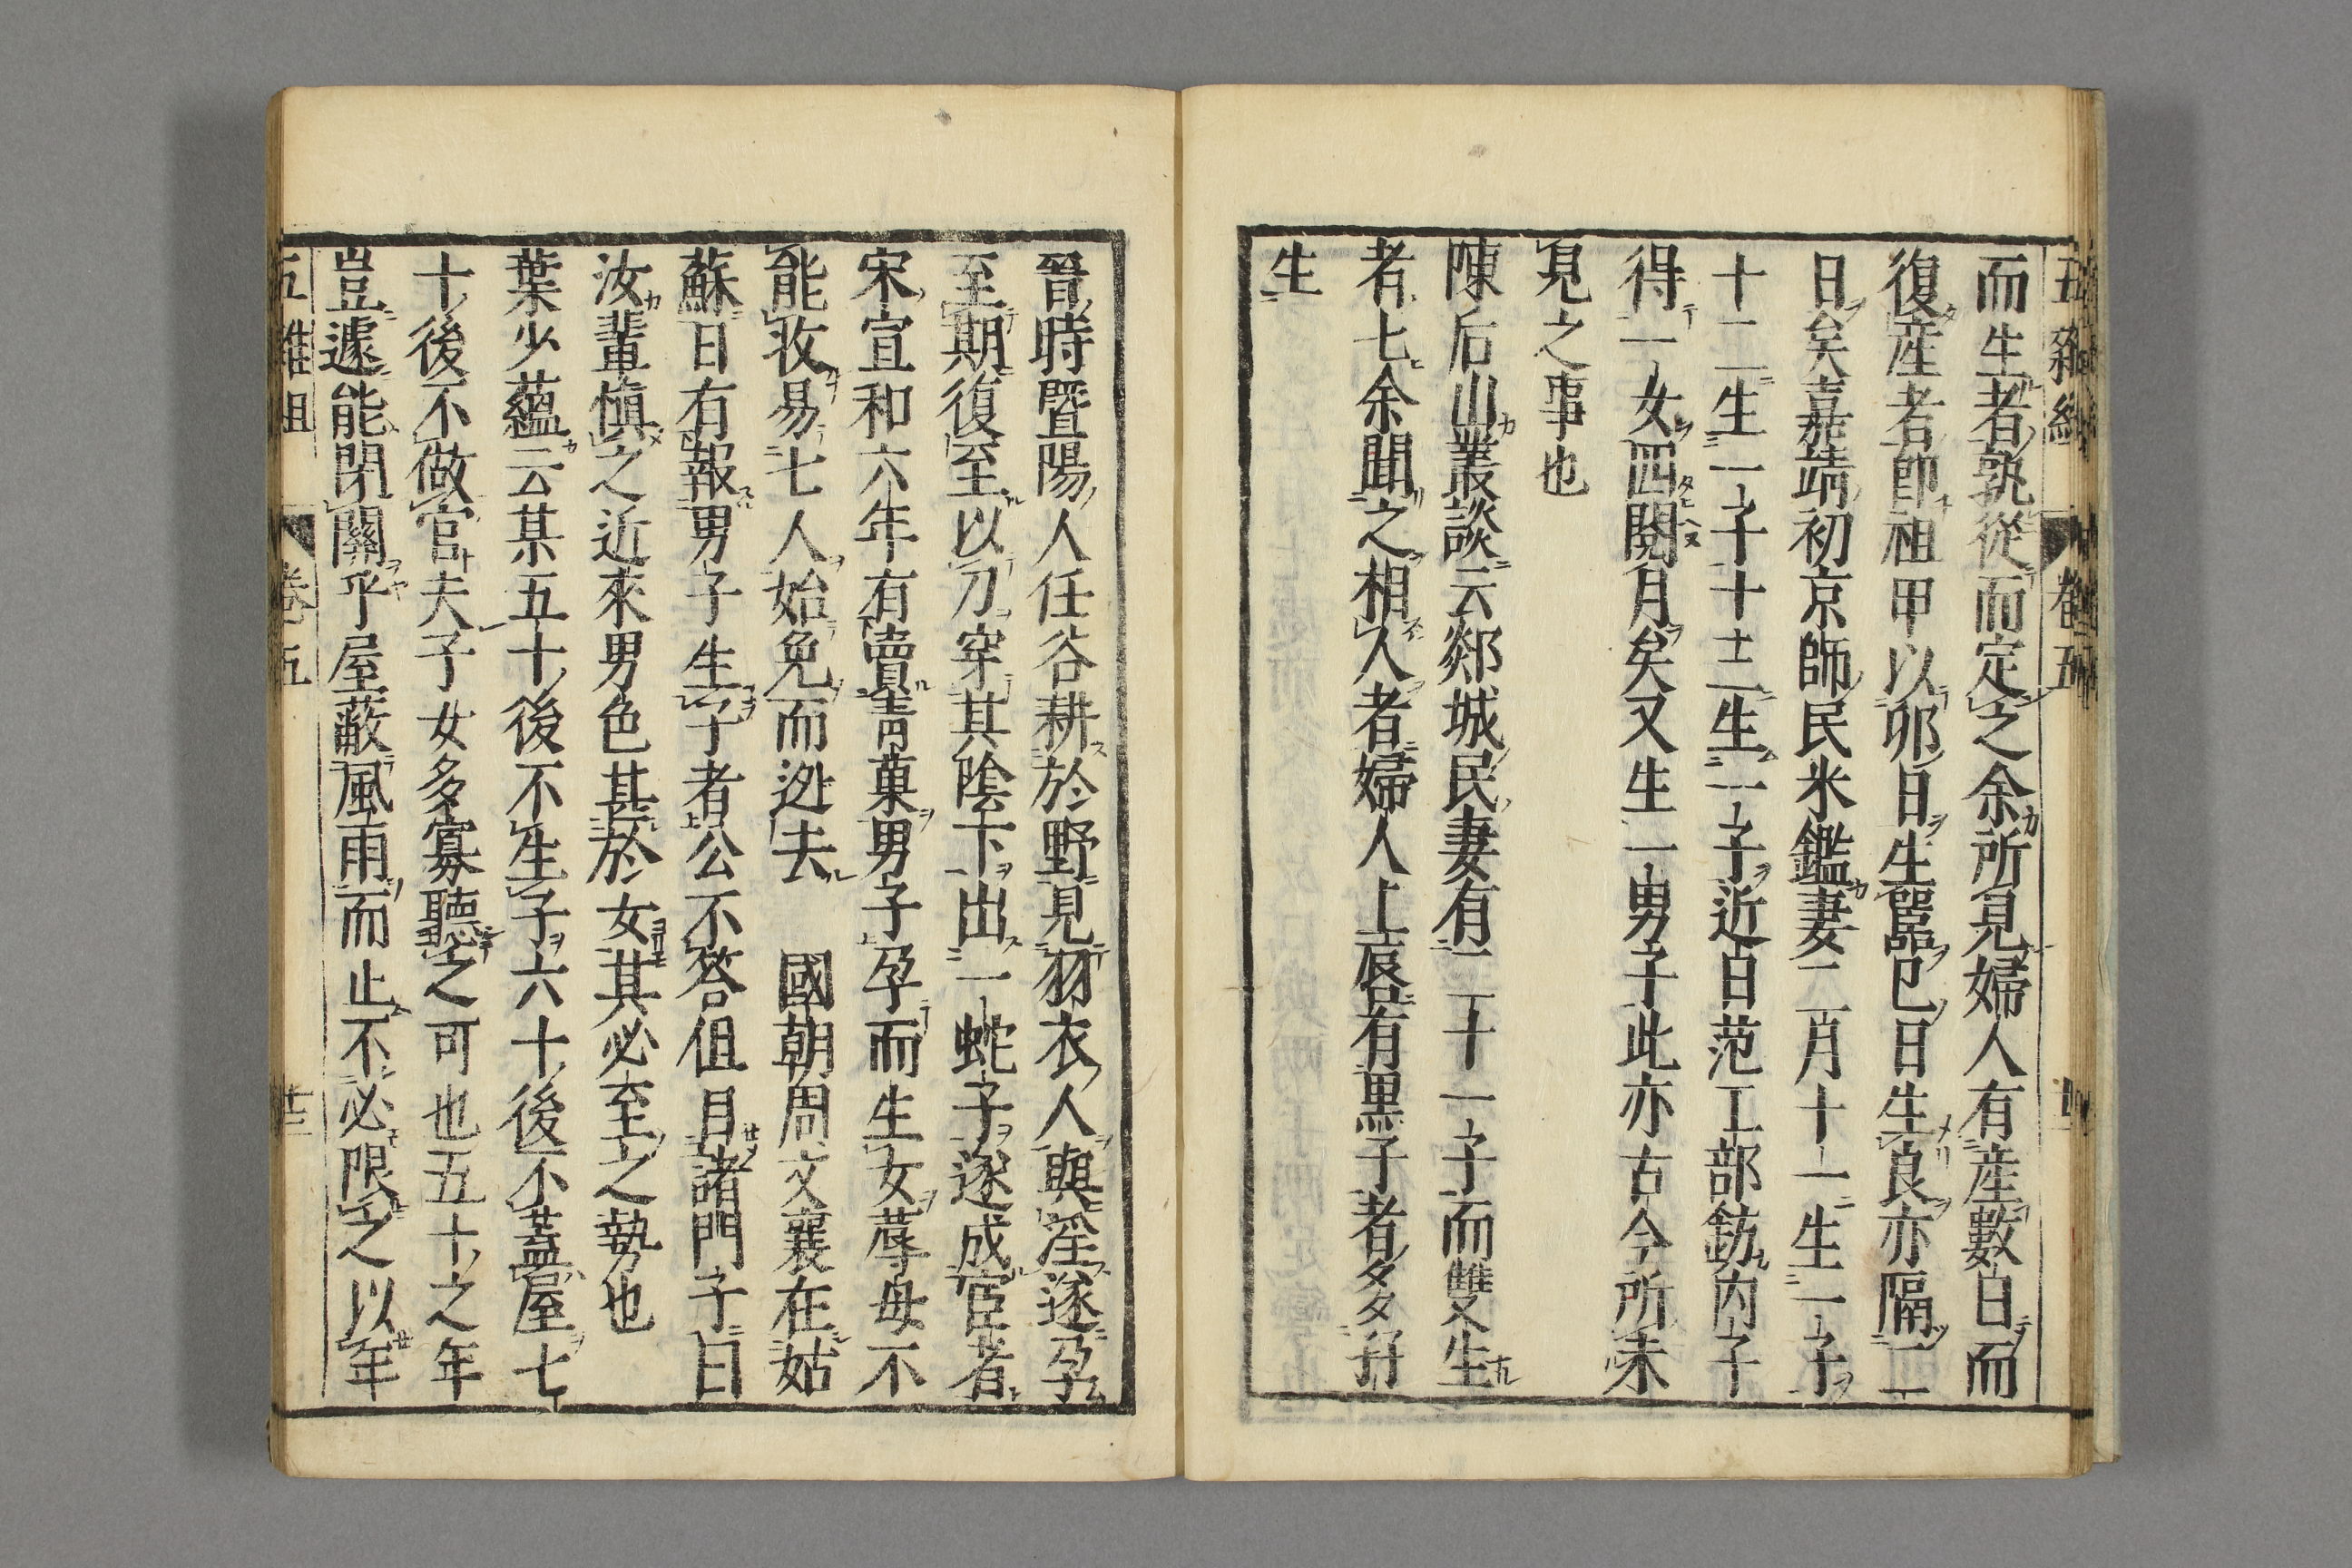 五雜組 卷五
而生者孰從而定之余所見婦人有産數日而
復産者卽祖甲以卯日生嚚巳日生良亦隔二
日矣嘉靖初京師民米鑑妻二月十一生一子
十二生一子十十二生一子近日范工部鈁内子
得一女四閱月矣又生一男子此亦古今所未
見之事也
陳后山叢談云郯城民妻有二十一子而雙生
者七余聞之相人者婦人上唇有黒子者多孖
生
晉時暨陽人任谷耕於野見羽衣人與淫遂孕
至期復至以刀穿其陰下出一蛇子遂成宦者
宋宣和六年有賣青菓男子孕而生女蓐母不
能收易七人始免而逃去 國朝周文襄在姑
蘇日有報男子生子者公不答但目諸門子曰
汝輩愼之近來男色甚於女其必至之勢也
葉少蘊云某五十後不生子六十後不蓋屋七
十後不做官夫子女多寡聽之可也五十之年
豈遽能閉關乎屋蔽風雨而止不必限之以年
五雜組 卷五 廿三